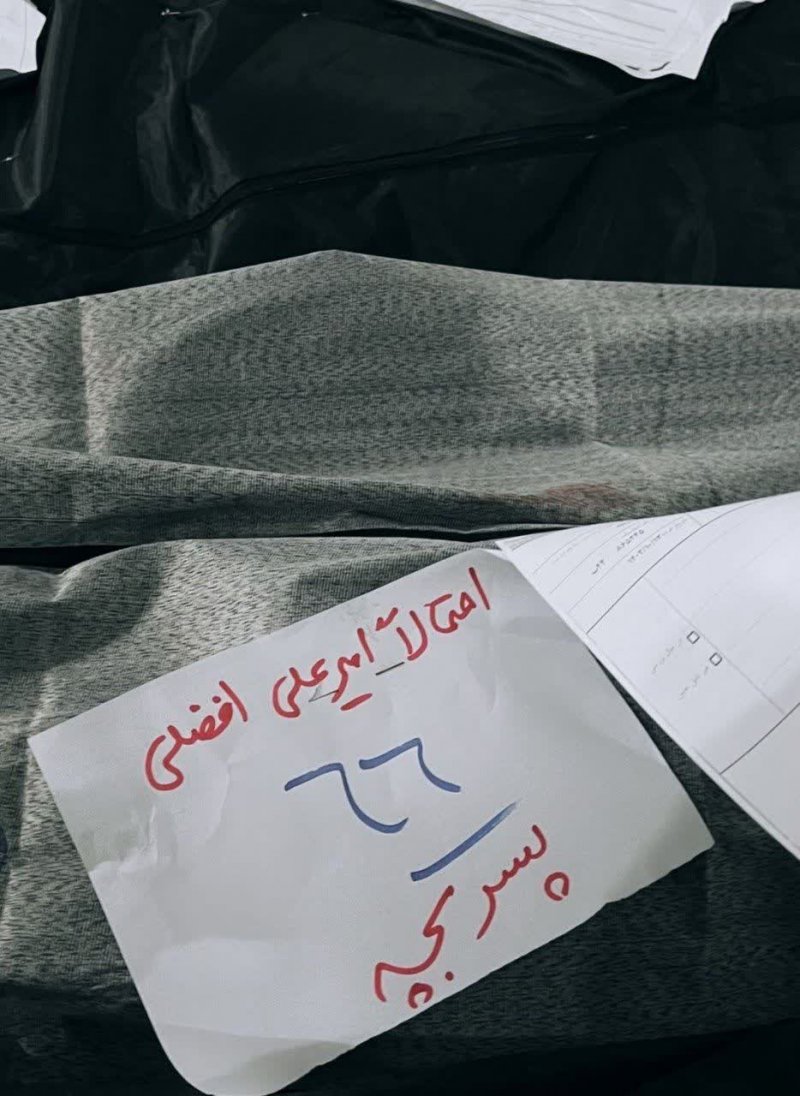 احتمالاً امیرعلی افضلی
۶۶
پسر بچه